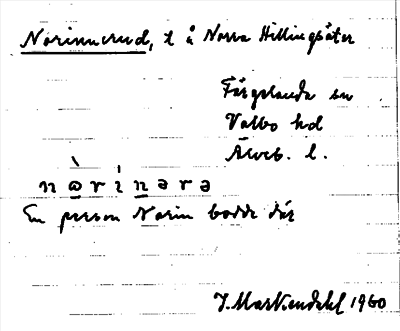 Norinnerud, t å Norra Hillingsäter
Färgelanda sn
Valbo hd
Älvsb. l.
n ò̱ r í n̲ ə r ə
En person Norin bodde där
J. Markendahl 1960